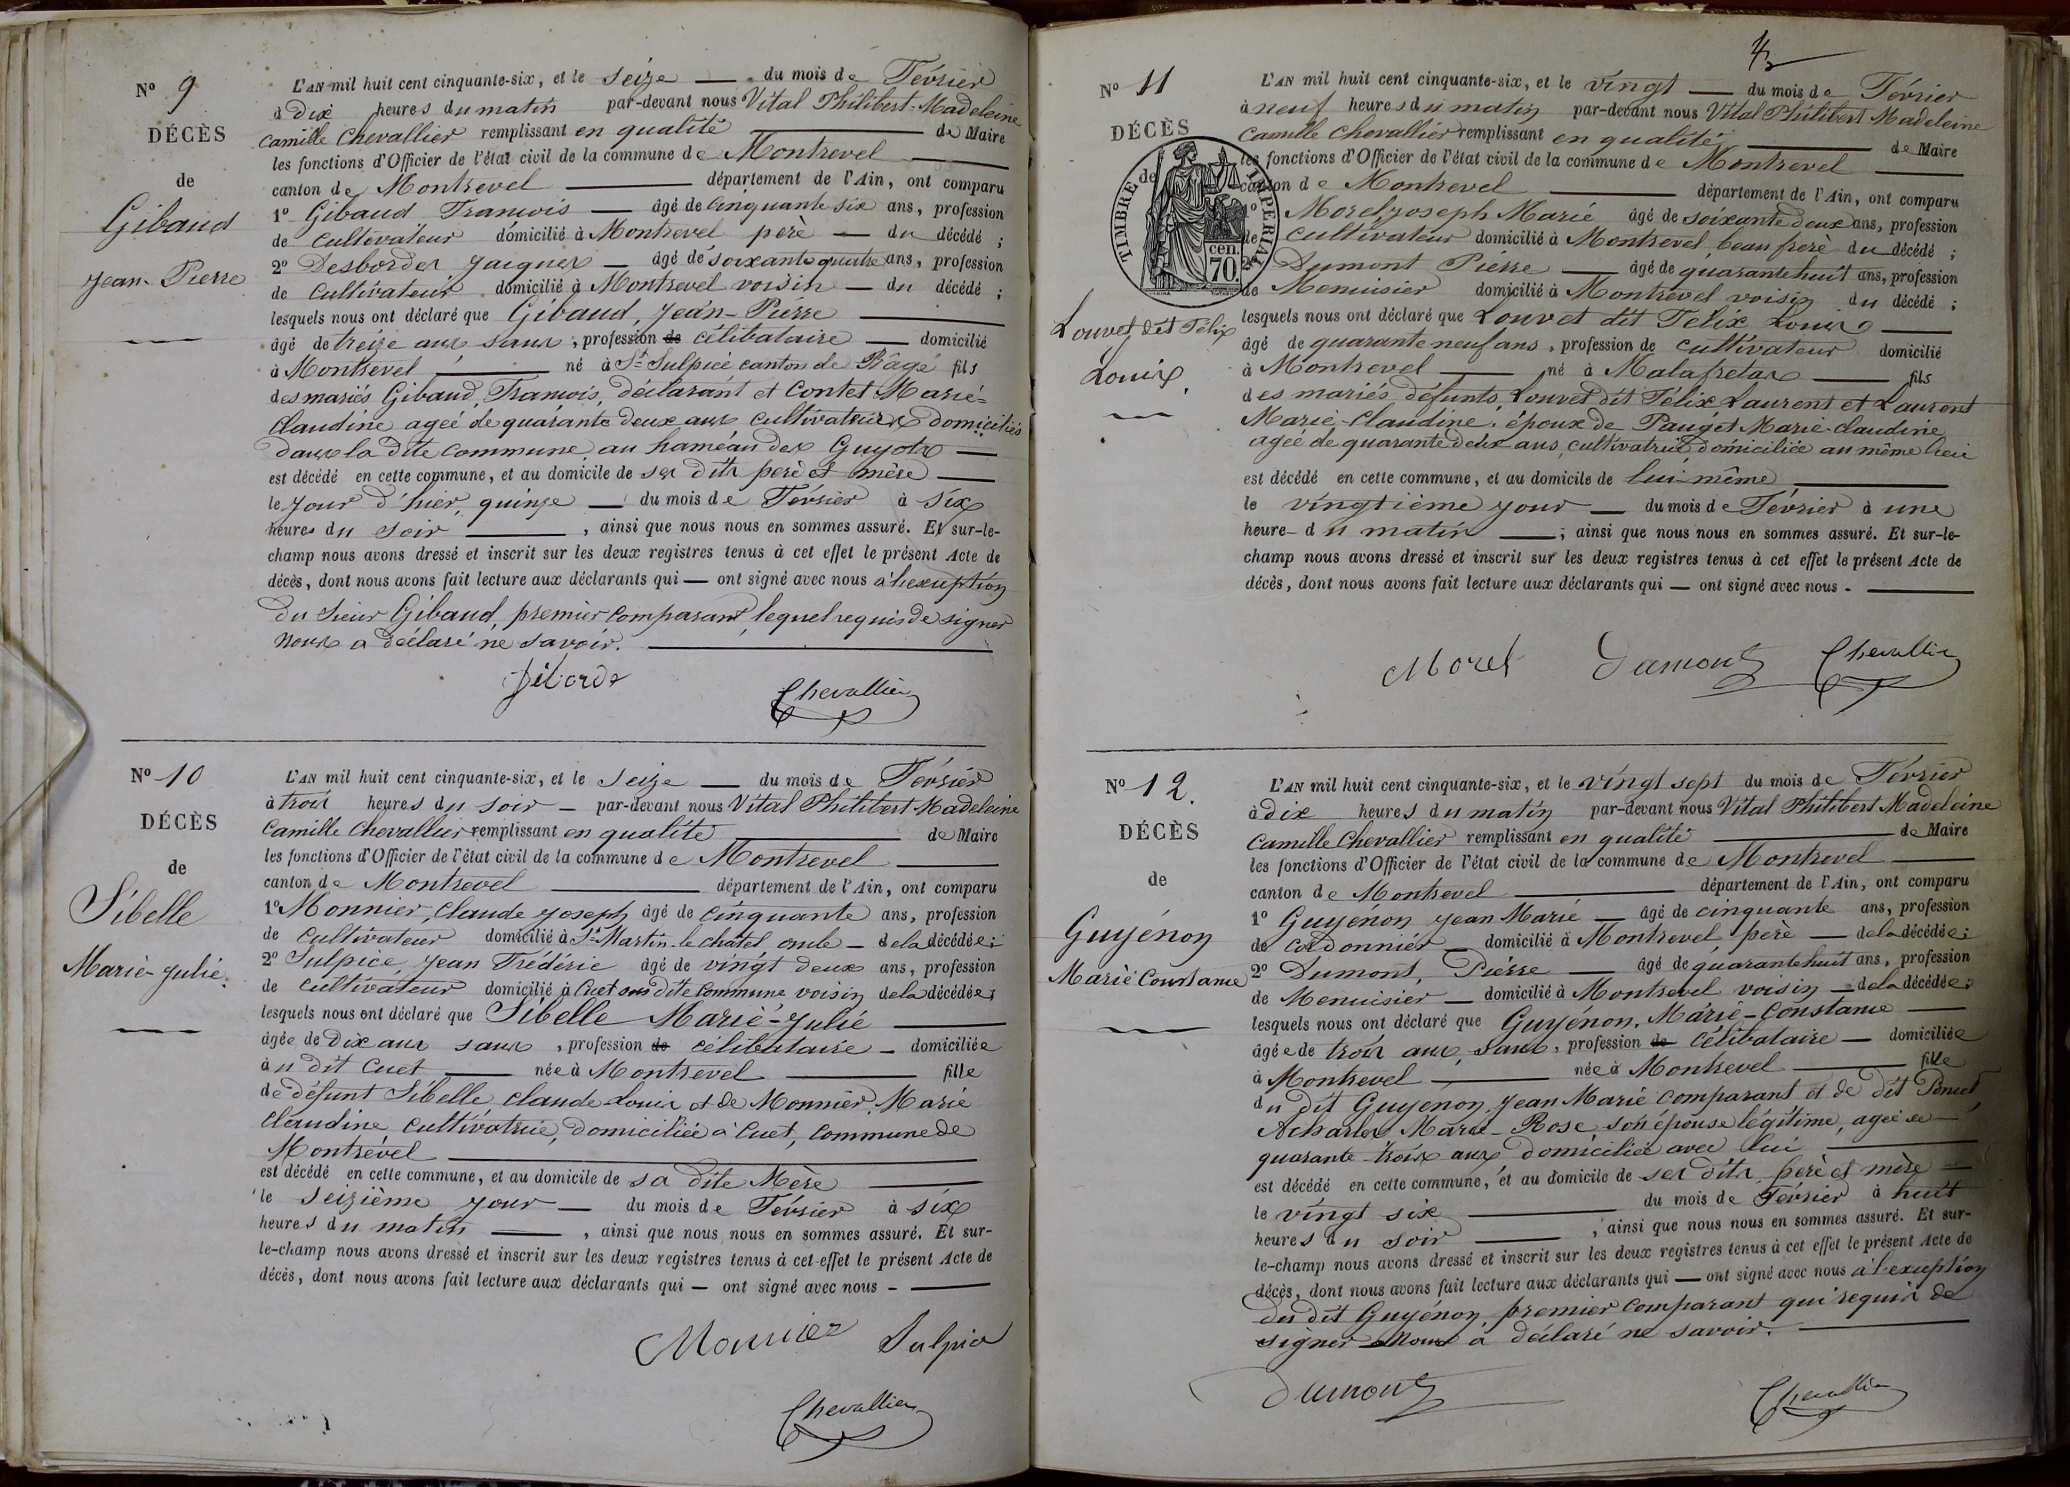 N° 9
DÉCÈS
de
Gibaud
Jean-Pierre
L'AN mil huit cent cinquante-six, et le seize du mois de Février
à dix heures du matin par-devant nous Vital Philibert-Madeleine
Camille Chevallier remplissant en qualité de Maire
les fonctions d'Officier de l'état civil de la commune de Montrevel
canton de Montrevel département de l'Ain, ont comparu
1° Gibaud François âgé de cinquante six ans, profession
de cultivateur domicilié à Montrevel père du décédé ;
2° Desbordes Jacques âgé de soixante quatre ans, profession
de cultivateur domicilié à Montrevel voisin du décédé ;
lesquels nous ont déclaré que Gibaud, Jean-Pierre
âgé de treize ans sans, profession de célibataire domicilié
à Montrevel né à St Sulpice canton de Bâgé fils
des mariés Gibaud, François, déclarant et Contet Marie-
Claudine agée de quarante deux ans cultivateurs domiciliés
dans la dite commune au haméau des Guyots
est décédé en cette commune, et au domicile de ses dits père et mère
le jour d'hier, quinze du mois de Février à six
heures du soir, ainsi que nous nous en sommes assuré. Et sur-le-
champ nous avons dressé et inscrit sur les deux registres tenus à cet effet le présent Acte de
décès, dont nous avons fait lecture aux déclarants qui — ont signé avec nous à l'exception
du sieur Gibaud, premier comparant, lequel requis de signer
nous a déclaré ne savoir.
Chevallier
N° 10
DÉCÈS
de
Sibelle
Marie-Julie.
L'AN mil huit cent cinquante-six, et le seize du mois de Février
à trois heures du soir par-devant nous Vital Philibert-Madeleine
Camille Chevallier remplissant en qualité de Maire
les fonctions d'Officier de l'état civil de la commune de Montrevel
canton de Montrevel département de l'Ain, ont comparu
1° Monnier, Claude Joseph âgé de cinquante ans, profession
de cultivateur domicilié à St Martin-le-chatel oncle de la décédée ;
2° Sulpice, Jean Frédéric âgé de vingt deux ans, profession
de cultivateur domicilié à Cuet sus dite commune voisin de la décédée ;
lesquels nous ont déclaré que Sibelle Marie-Julie
âgée de dix ans sans, profession de célibataire domiciliée
au dit Cuet née à Montrevel fille
de défunt Sibelle Claude Louis et de Monnier, Marie
Claudine cultivatrice, domiciliée à Cuet, commune de
Montrevel
est décédé en cette commune, et au domicile de sa dite Mère
le seizième jour du mois de Février à six
heures du matin, ainsi que nous nous en sommes assuré. Et sur-
le-champ nous avons dressé et inscrit sur les deux registres tenus à cet effet le présent Acte de
décès, dont nous avons fait lecture aux déclarants qui — ont signé avec nous -
Monnier Sulpice
Chevallier
N° 11
DÉCÈS
de
TIMBRE IMPERIAL
70 cen.
Louvet dit Félix
Louis.
L'AN mil huit cent cinquante-six, et le vingt du mois de Février
à neuf heures du matin par-devant nous Vital Philibert Madeleine
Camille Chevallier remplissant en qualité de Maire
les fonctions d'Officier de l'état civil de la commune de Montrevel
canton de Montrevel département de l'Ain, ont comparu
1° Morel, Joseph Marie âgé de soixante deux ans, profession
de cultivateur domicilié à Montrevel, beau frère du décédé ;
2° Dumont Pierre âgé de quarante huit ans, profession
de Menuisier domicilié à Montrevel voisin du décédé ;
lesquels nous ont déclaré que Louvet dit Félix Louis
âgé de quarante neuf ans, profession de cultivateur domicilié
à Montrevel né à Malafretaz fils
des mariés défunts, Louvet dit Félix Laurent et Laurent
Marie-Claudine, époux de Pauget Marie-Claudine
agée de quarante deux ans, cultivatrice, domiciliée au même lieu
est décédé en cette commune, et au domicile de lui-même
le vingtième jour du mois de Février à une
heure du matin ; ainsi que nous nous en sommes assuré. Et sur-le-
champ nous avons dressé et inscrit sur les deux registres tenus à cet effet le présent Acte de
décès, dont nous avons fait lecture aux déclarants qui — ont signé avec nous -
Morel Dumont Chevallier
N° 12.
DÉCÈS
de
Guyénon
Marie Constance
L'AN mil huit cent cinquante-six, et le vingt sept du mois de Février
à dix heures du matin par-devant nous Vital Philibert Madeleine
Camille Chevallier remplissant en qualité de Maire
les fonctions d'Officier de l'état civil de la commune de Montrevel
canton de Montrevel département de l'Ain, ont comparu
1° Guyénon Jean Marie âgé de cinquante ans, profession
de cordonnier domicilié à Montrevel, père de la décédée ;
2° Dumont, Pierre âgé de quarante huit ans, profession
de Menuisier domicilié à Montrevel voisin de la décédée ;
lesquels nous ont déclaré que Guyénon, Marie-Constance
âgée de trois ans, sans, profession de célibataire domiciliée
à Montrevel née à Montrevel fille
du dit Guyénon Jean Marie comparant et de dit
Marie-Rose son épouse légitime, agée de
quarante-trois ans domiciliée avec lui
est décédé en cette commune, et au domicile de ses dits père et mère
le vingt six du mois de Février à huit
heures du soir, ainsi que nous nous en sommes assuré. Et sur-
le-champ nous avons dressé et inscrit sur les deux registres tenus à cet effet le présent Acte de
décès, dont nous avons fait lecture aux déclarants qui — ont signé avec nous à l'exception
du dit Guyénon, premier comparant qui requis de
signer nous a déclaré ne savoir.
Dumont Chevallier